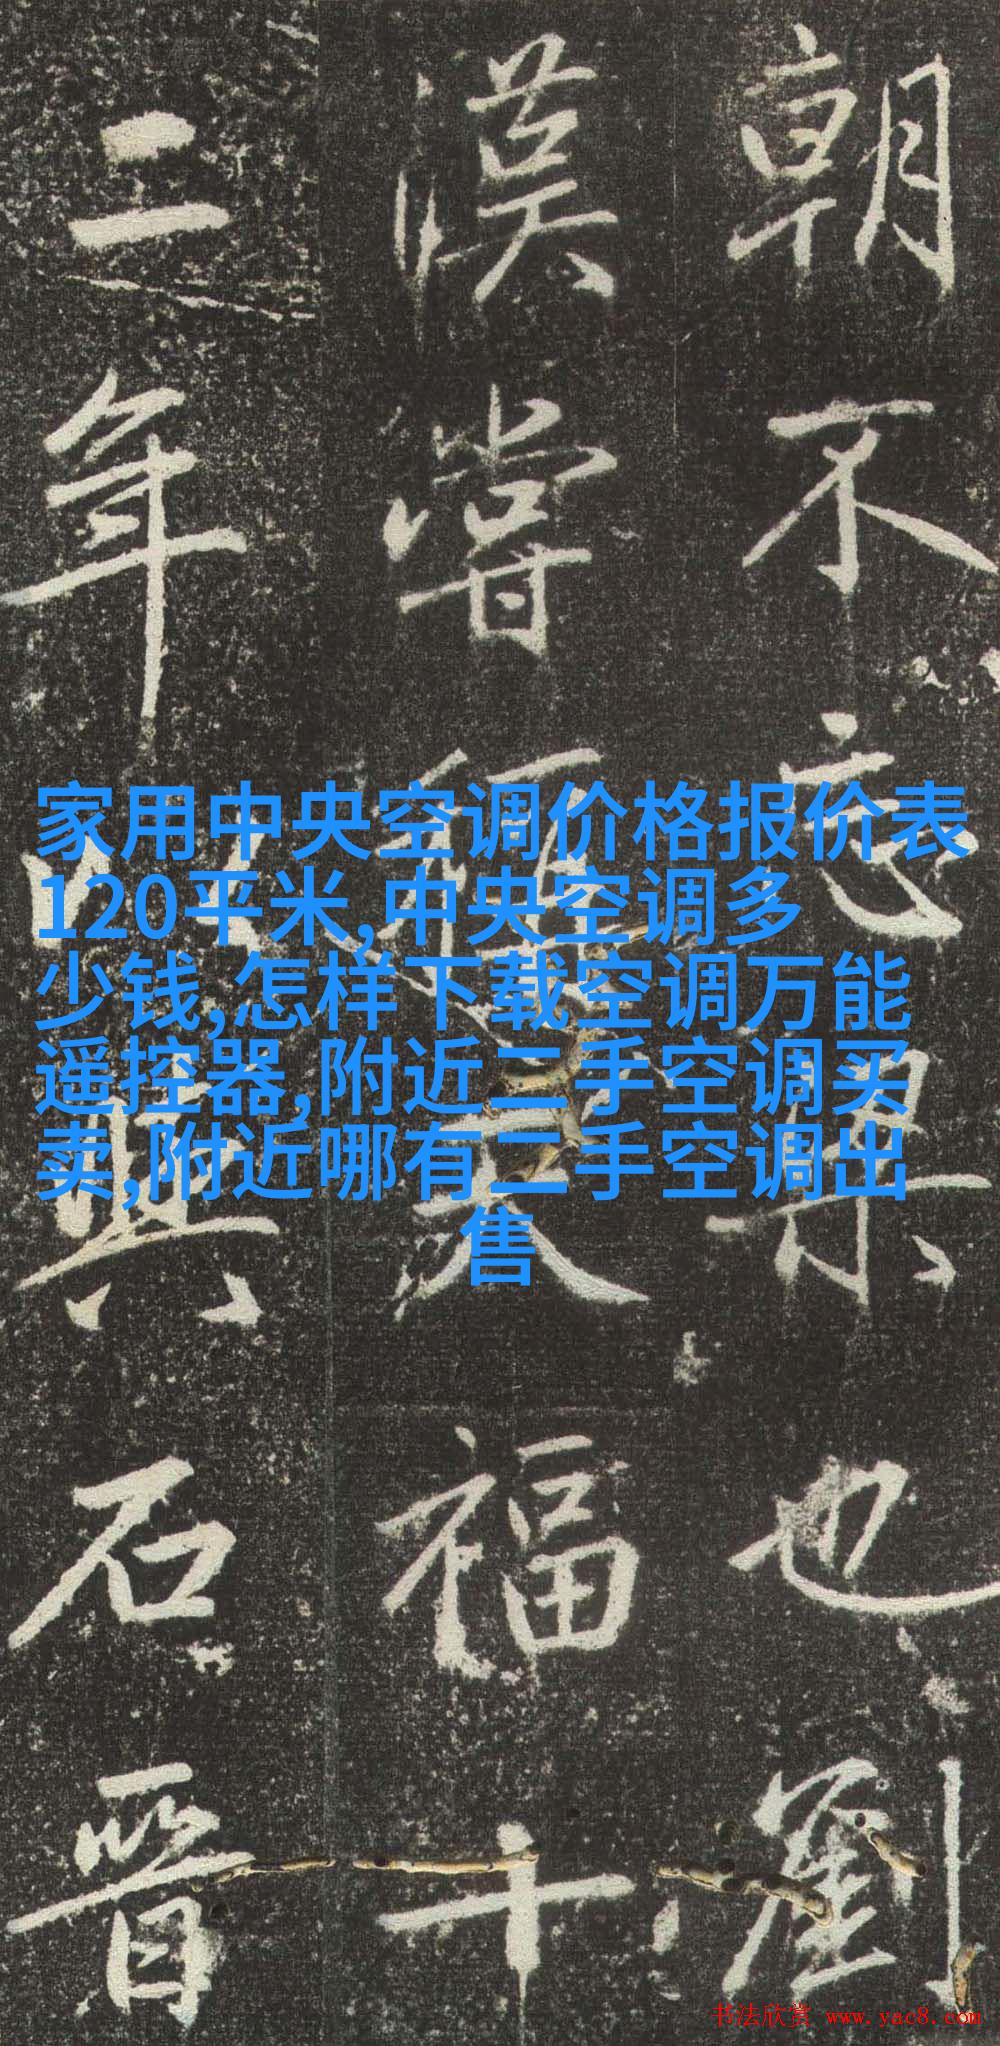 朝不忘其身也劉
漢嘗
福十
二年
石晉
家用中央空调价格报价表
120平米,中央空调多
少钱,怎样下载空调万能
遥控器,附近二手空调买
卖,附近哪有二手空调出
售
书法欣赏 www.yac8.com